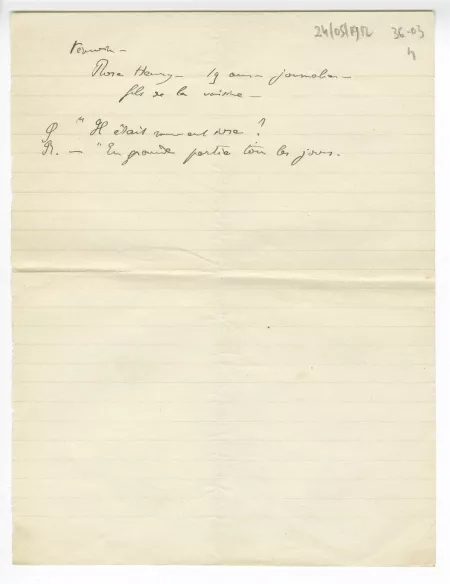 24/05/1912 36-03
4
Témoin –
Rose Henry – 19 ans – journalier –
fils de la voisine –
Q. "Il était souvent ivre ?
R. – "En grande partie tous les jours.